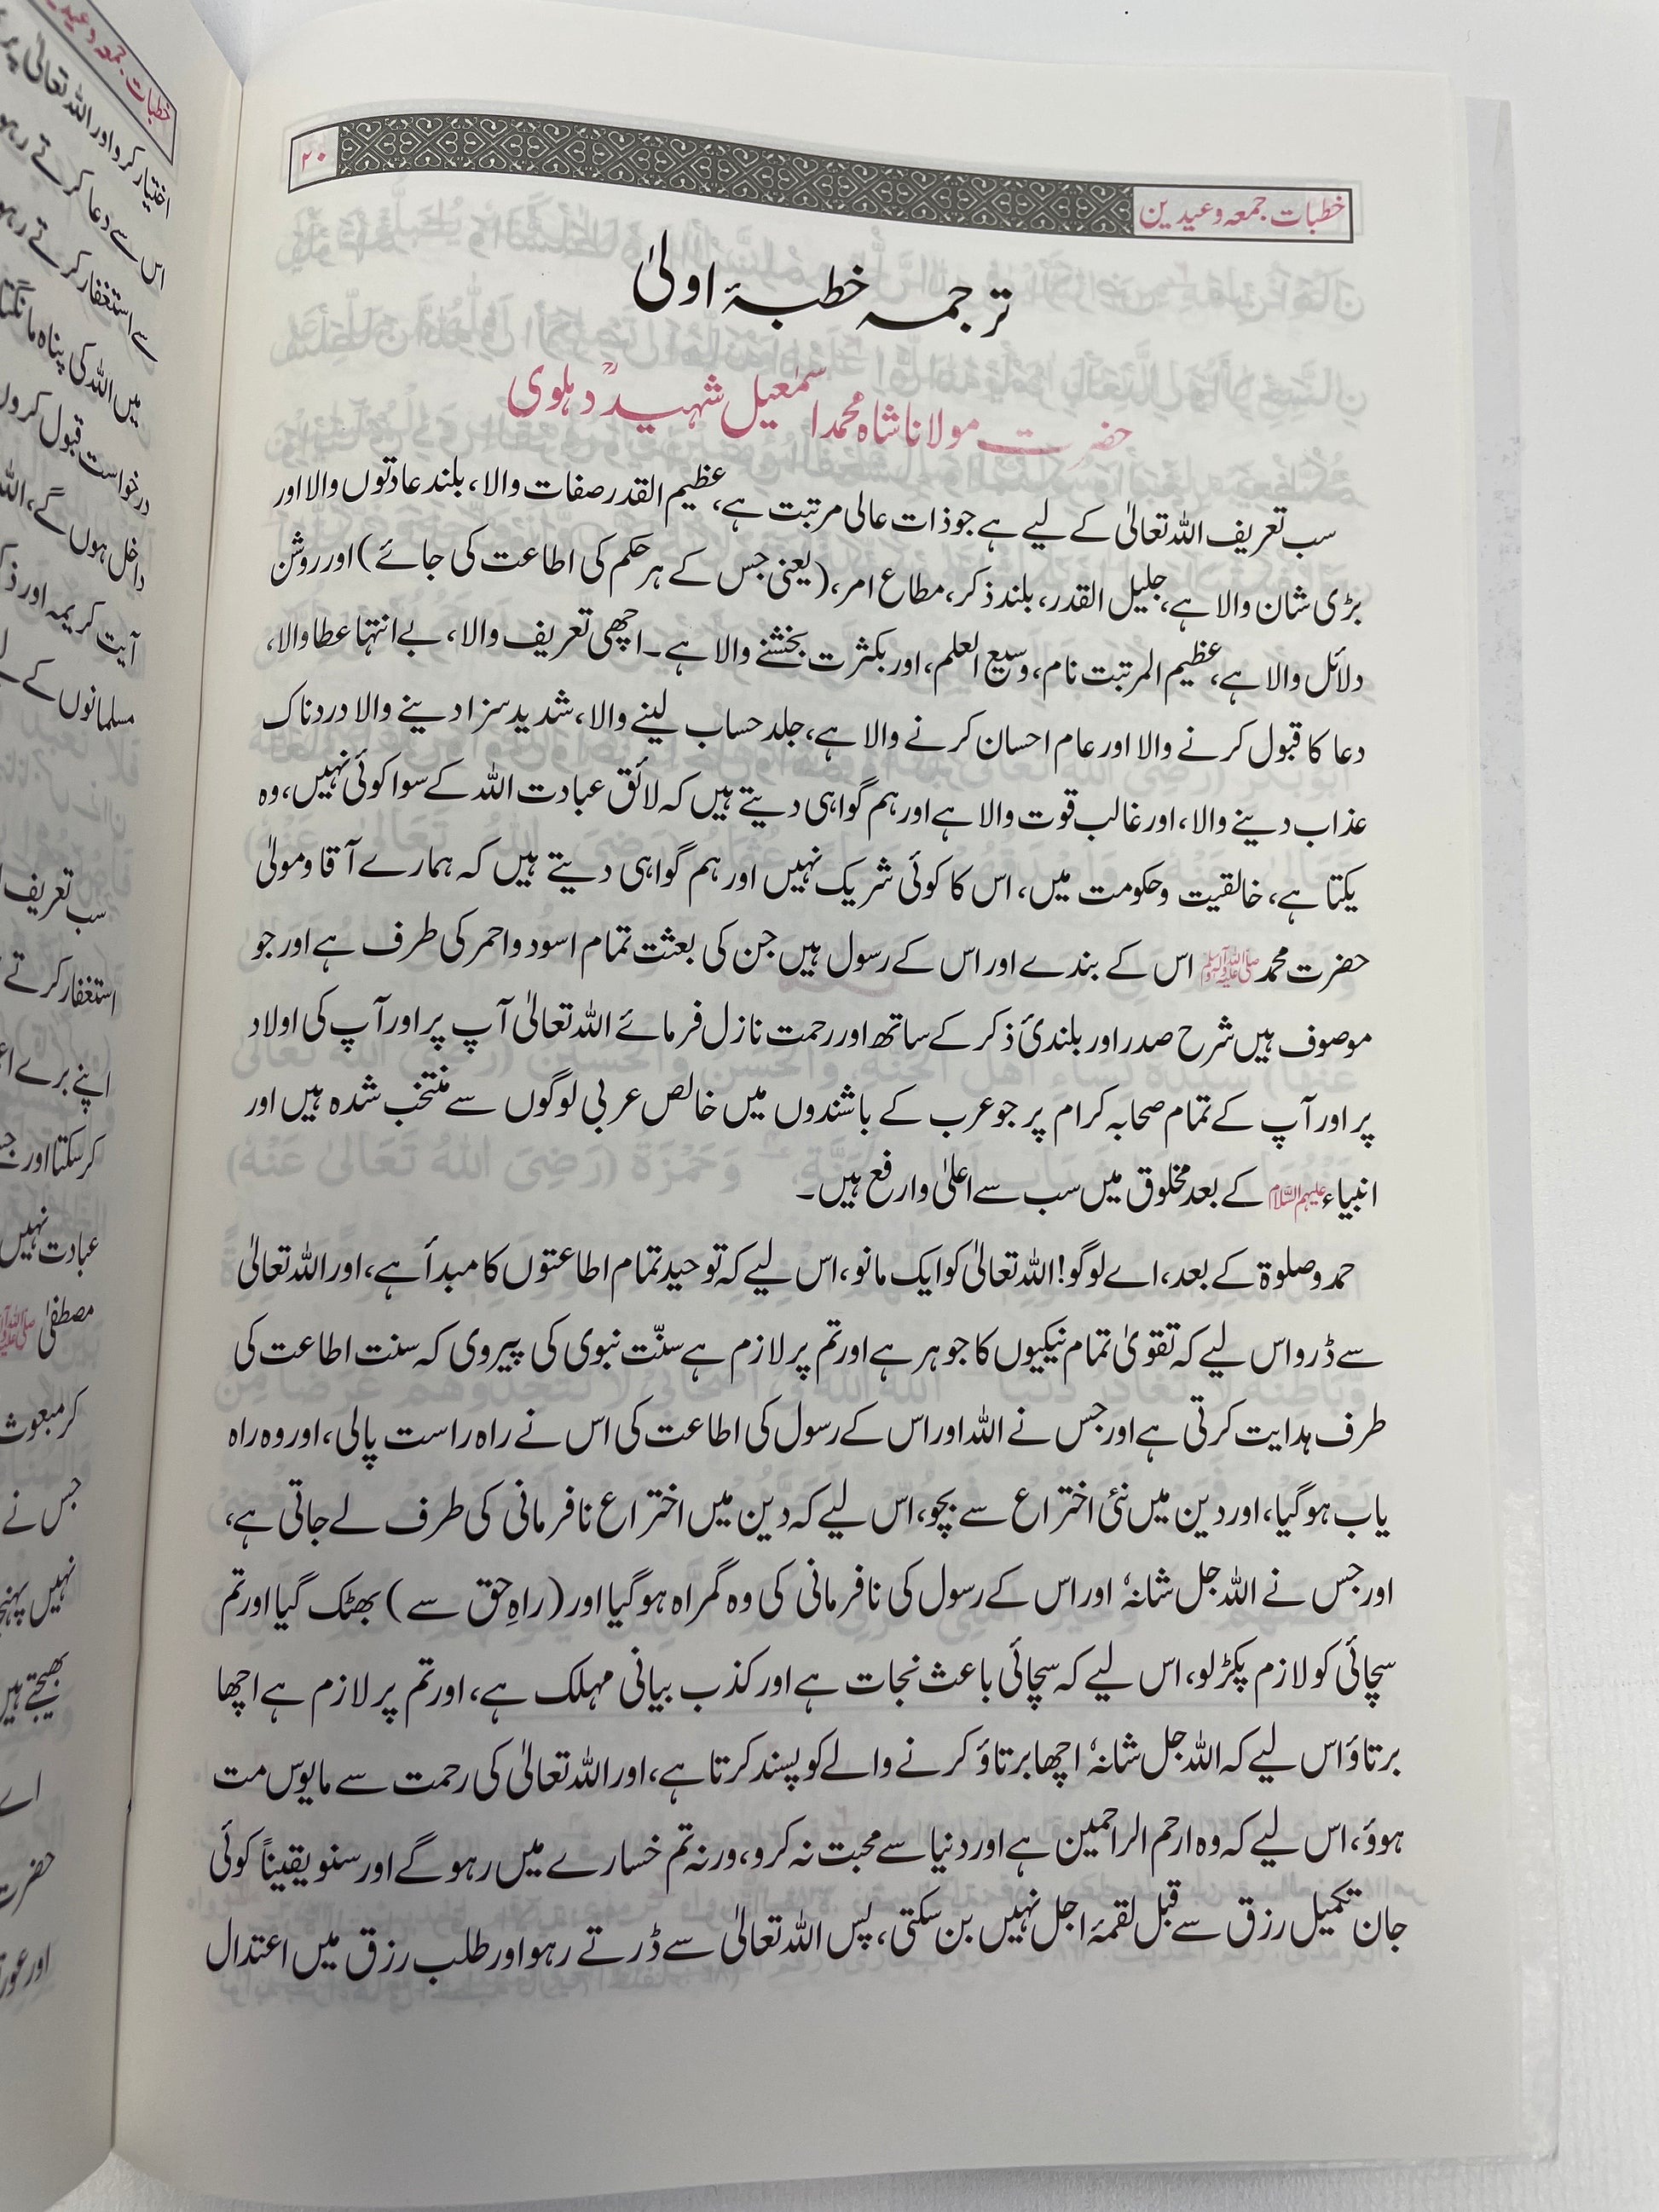 خطبات جمعہ و عیدین
۲۰
ترجمہ خطبۂ اولیٰ
حضرت مولانا شاہ محمد اسمٰعیل شہیدؒ دہلوی
سب تعریف اللہ تعالیٰ کے لیے ہے جو ذات عالی مرتبت ہے، عظیم القدر صفات والا، بلند عادتوں والا اور
بڑی شان والا ہے، جلیل القدر، بلند ذکر، مطاع امر، (یعنی جس کے ہر حکم کی اطاعت کی جائے) اور روشن
دلائل والا ہے، عظیم المرتبت نام، وسیع العلم، اور بکثرت بخشنے والا ہے۔ اچھی تعریف والا، بے انتہا عطا والا،
دعا کا قبول کرنے والا اور عام احسان کرنے والا ہے، جلد حساب لینے والا، شدید سزا دینے والا دردناک
عذاب دینے والا، اور غالب قوت والا ہے اور ہم گواہی دیتے ہیں کہ لائق عبادت اللہ کے سوا کوئی نہیں، وہ
یکتا ہے، خالقیت وحکومت میں، اس کا کوئی شریک نہیں اور ہم گواہی دیتے ہیں کہ ہمارے آقا ومولیٰ
حضرت محمد ﷺ اس کے بندے اور اس کے رسول ہیں جن کی بعثت تمام اسود واحمر کی طرف ہے اور جو
موصوف ہیں شرح صدر اور بلندیٔ ذکر کے ساتھ اور رحمت نازل فرمائے اللہ تعالیٰ آپ پر اور آپ کی اولاد
پر اور آپ کے تمام صحابہ کرام پر جو عرب کے باشندوں میں خالص عربی لوگوں سے منتخب شدہ ہیں اور
انبیاء علیہم السلام کے بعد مخلوق میں سب سے اعلیٰ وارفع ہیں۔
حمد و صلوۃ کے بعد، اے لوگو! اللہ تعالیٰ کو ایک مانو، اس لیے کہ توحید تمام اطاعتوں کا مبدأ ہے، اور اللہ تعالیٰ
سے ڈرو اس لیے کہ تقویٰ تمام نیکیوں کا جوہر ہے اور تم پر لازم ہے سنّت نبوی کی پیروی کہ سنت اطاعت کی
طرف ہدایت کرتی ہے اور جس نے اللہ اور اس کے رسول کی اطاعت کی اس نے راہ راست پالی، اور وہ راہ
یاب ہوگیا، اور دین میں نئی اختراع سے بچو، اس لیے کہ دین میں اختراع نافرمانی کی طرف لے جاتی ہے،
اور جس نے اللہ جل شانہٗ اور اس کے رسول کی نافرمانی کی وہ گمراہ ہوگیا اور (راہِ حق سے) بھٹک گیا اور تم
سچائی کو لازم پکڑ لو، اس لیے کہ سچائی باعث نجات ہے اور کذب بیانی مہلک ہے، اور تم پر لازم ہے اچھا
برتاؤ اس لیے کہ اللہ جل شانہٗ اچھا برتاؤ کرنے والے کو پسند کرتا ہے، اور اللہ تعالیٰ کی رحمت سے مایوس مت
ہوؤ، اس لیے کہ وہ ارحم الراحمین ہے اور دنیا سے محبت نہ کرو، ورنہ تم خسارے میں رہو گے اور سنو یقیناً کوئی
جان تکمیل رزق سے قبل لقمۂ اجل نہیں بن سکتی، پس اللہ تعالیٰ سے ڈرتے رہو اور طلب رزق میں اعتدال
خطبات جمعہ و
اختیار کرو اور اللہ تعالیٰ پر
اس سے دعا کرتے رہو
سے استغفار کرتے رہو
میں اللہ کی پناہ مانگتا
درخواست قبول کروں
داخل ہوں گے، اللہ
آیت کریمہ اور
مسلمانوں کے
سب تعریف
استغفار کرتے
اپنے برے
کر سکتا اور
عبادت نہیں
مصطفیٰ ﷺ
کر مبعوث
جس نے
نہیں
بھیجتے ہیں
اے
حضرت